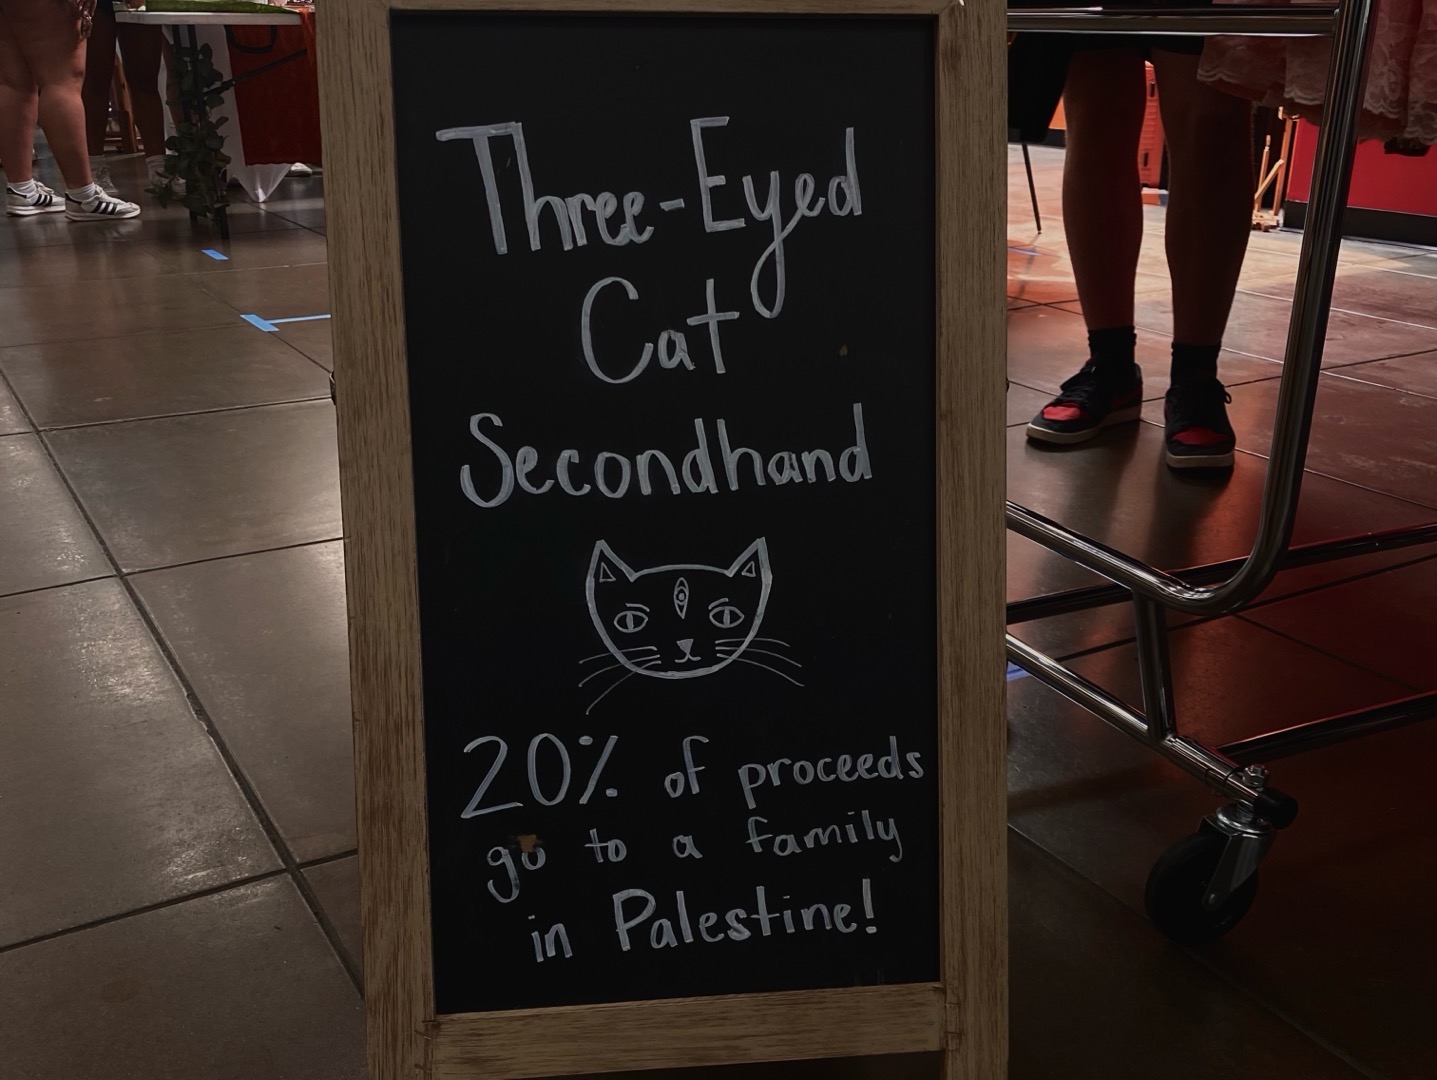 Three-Eyed
Cat
Secondhand
20% of proceeds
go to a family
in Palestine!